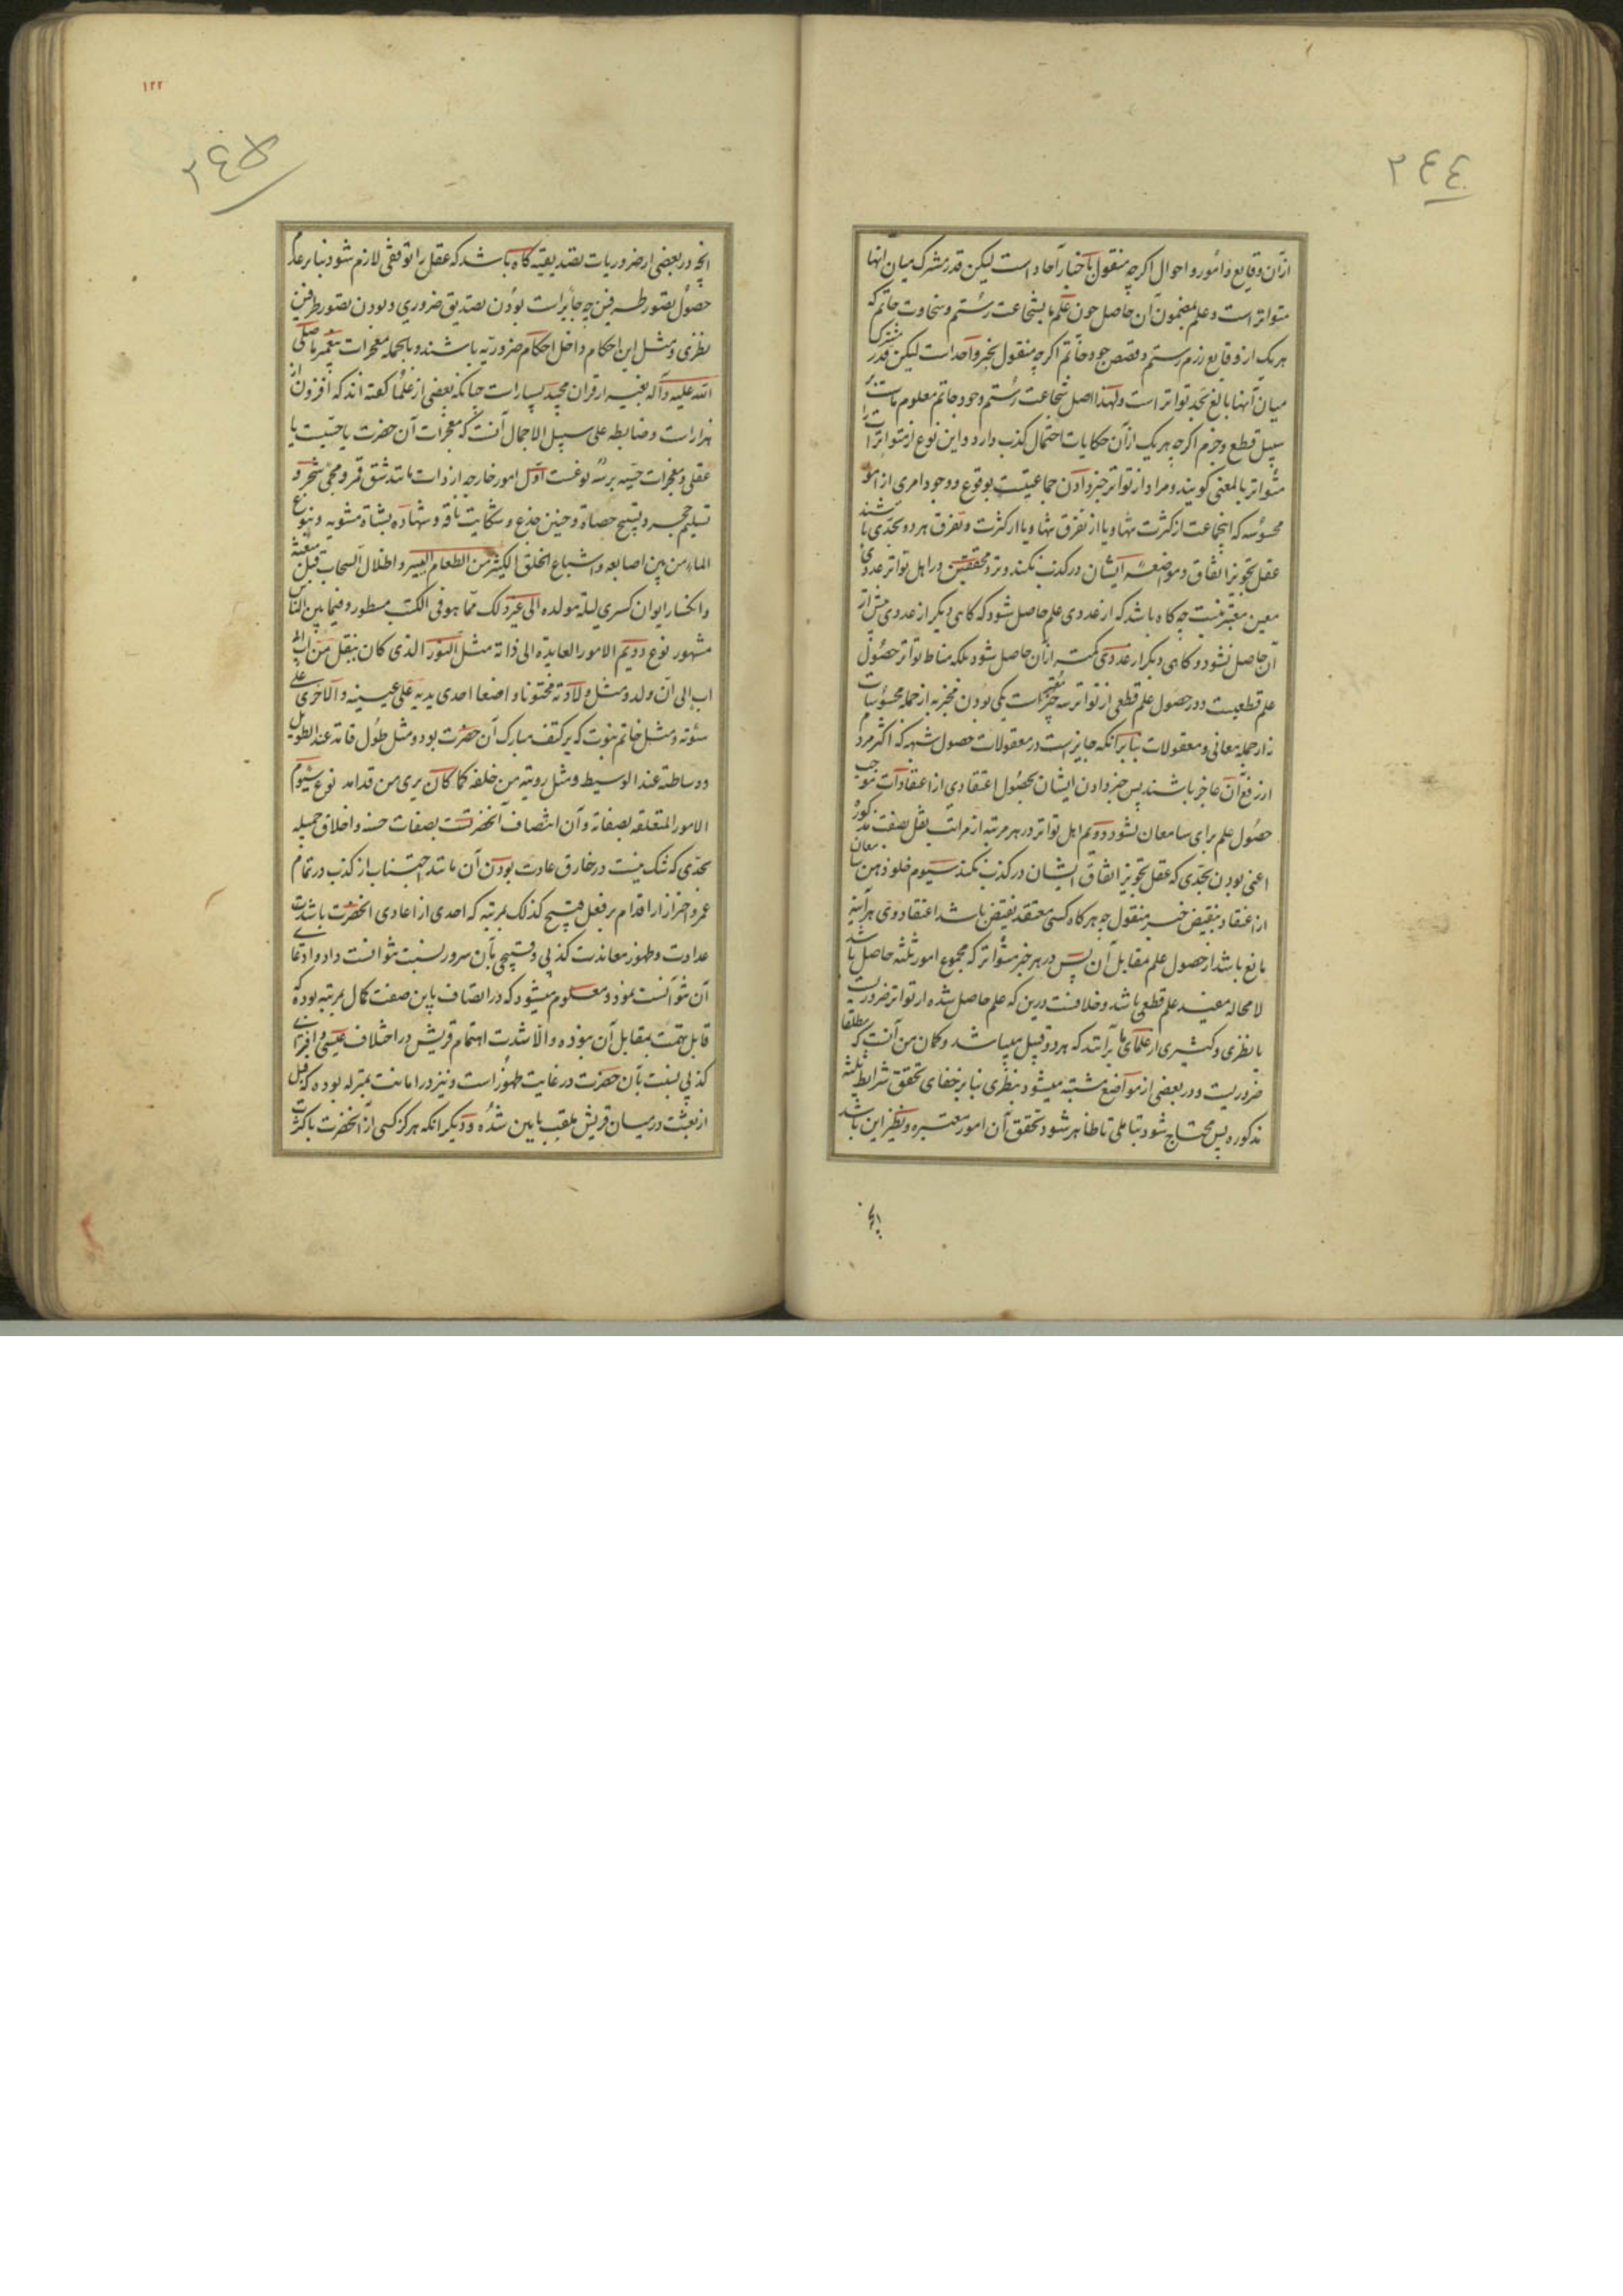 ٢٤٤
ازآن وقایع و امور و احوال اکرچه منقول باخبار آحاد است لیکن قدر مشترک میان انها
متواتر است و علم بمضمون آن حاصل چون علم ما بشجاعت رستم و سخاوت حاتم که
هر یک از وقایع رزم رستم و قصص جود حاتم اکرچه منقول بخبر واحد است لیکن قدر مشترک
میان آنها بالغ بحد تواتر است و لهذا اصل شجاعت رستم و جود حاتم معلوم ماست بر
سبیل قطع و جزم اکرچه هر یک ازآن حکایات احتمال کذب دارد و این نوع از متواتر را
متواتر بالمعنی کویند و مراد از تواتر خبر دادن جماعتیست بوقوع و وجود امری از امور
محسوسه که انجماعت از کثرت تنها و یا از تفرق تنها و یا از کثرت و تفرق هر دو بحدی باشند
عقل تجویز اتفاق و مواضعه ایشان در کذب نکند و نزد محققین در اهل تواتر عددی
معین معتبر نیست چه کاه باشد که از عددی علم حاصل شود که کاهی دیکر از عددی بیش از
آن حاصل نشود و کاهی دیکر از عددی کمتر ازآن حاصل شود بلکه مناط تواتر حصول
علم قطعیست و در حصول علم قطعی از تواتر سه چیز معتبر است یکی بودن مخبر به از جمله محسوسات
نه از جمله معانی و معقولات بنابرانکه جایز است در معقولات حصول شبهه که اکثر مردم
از رفع آن عاجز باشند پس خبر دادن ایشان بحصول اعتقادی از اعتقادات موجب
حصول علم برای سامعان نشود دویم اهل تواتر در هر مرتبه از مراتب نقل بصفت مذکوره
اعنی بودن بحدی که عقل تجویز اتفاق ایشان در کذب نکند سیوم خلو ذهن سامعان
از اعتقاد بنقیض خبر منقول چه هر کاه کسی معتقد نقیض باشد اعتقاد وی هرآینه
مانع باشد از حصول علم مقابل آن پس در هر خبر متواتر که مجموع امور ثلثه حاصل باشد
لامحاله مفید علم قطعی باشد و خلافست درین که علم حاصل شده از تواتر ضروریست
یا نظری و کثیری از علمای ما برآنند که هر دو قبیل میباشد و کمان من آنست که مطلقا
ضروریست و در بعضی از مواضع مشتبه میشود بنظری بنابر خفای تحقق شرایط ثلثه
مذکوره پس محتاج شود بتاملی تا ظاهر شود تحقق آن امور معتبره و نظیر این باشد
انچه
١٢٢
٢٤٥
انچه در بعضی از ضروریات تصدیقیه کاه باشد که عقل را توقفی لازم شود بنابر عدم
حصول تصور طرفین چه جایز است بودن تصدیق ضروری و بودن تصور طرفین
نظری و مثل این احکام داخل احکام ضروریه باشند و بالجمله معجزات پیغمبر ما صلی
الله علیه وآله بغیر از قران مجید بسیار است چنانکه بعضی از علما کفته اند که افزون از
هزار است و ضابطه علی سبیل الاجمال آنست که معجزات آن حضرت یا حسیست یا
عقلی و معجزات حسیه بر سه نوعست اول امور خارجه از ذات مانند شق قمر و مجی شجر و
تسلیم حجر و تسبیح حصاة و حنین جذع و شکایت ناقه و شهاده شاة مشویه و نبوع
الماء من بین اصابعه و اشباع الخلق الکثیر من الطعام الیسیر و اظلال السحاب قبل مبعثه
و انکسار ایوان کسری لیلة مولده الی غیر ذلک مما هو فی الکتب مسطور و فیما بین الناس
مشهور نوع دویم الامور العایده الی ذاته مثل النور الذی کان ینقل من اب الی
اب الی ان ولد و مثل ولادته مختونا و اضعا احدی یدیه علی عینیه و الاخری علی
سوئته و مثل خاتم نبوت که بر کتف مبارک آن حضرت بود و مثل طول قامته عند الطویل
و وساطته عند الوسیط و مثل رویته من خلفه کما کان یری من قدامه نوع سیوم
الامور المتعلقه بصفاته و آن اتصاف آنحضرتست بصفات حسنه و اخلاق جمیله
بحدی که شک نیست در خارق عادت بودن آن مانند اجتناب از کذب در تمام
عمر و احتراز از اقدام بر فعل قبیح کذلک بمرتبه که احدی از اعادی انحضرت باشدت
عداوت و ظهور معاندت کذبی و قبیحی بآن سرور نسبت نتوانست داد و ادعای
آن نتوانست نمود و معلوم میشود که در اتصاف باین صفت کمال بمرتبه بوده
قابل تهمت بمقابل آن نبوده و الا شدت اهتمام قریش در اختلاف عیبی و افترای
کذبی نسبت بآن حضرت در غایت ظهور است و نیز در امانت بمنزله بوده که قبل
از بعثت درمیان قریش ملقب بامین شده و دیکر انکه هرکز کسی از آنحضرت باکثرت